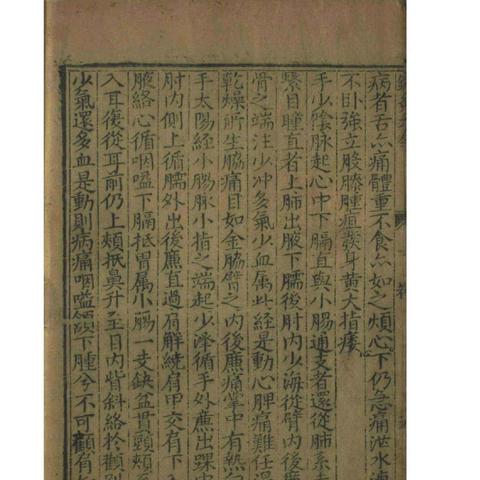 病者舌亦痛體重不食亦如之煩心下仍急痛泄水
不卧強立股膝腫疽發身黃大指痿
手少陰脉起心中下膈直與小腸通支者還從肺系
繫目瞳直者上肺出腋下臑後肘内少海從臂内後
骨之端注少冲多氣少血属此經是動心脾痛難任
乾燥所生脇痛目如金脇臂之内後廉痛掌中有熱
手太陽經小腸脉小指之端起少澤循手外廉出踝中
肘内側上循臑外出後廉直過肩解繞肩甲交肩下
腋絡心循咽嗌下膈抵胃属小腸一支缺盆貫頸頰至
入耳復從耳前仍上頰抵鼻升至目内眥斜絡於顴別
少氣還多血是動則病痛咽嗌頷下腫兮不可顧肩